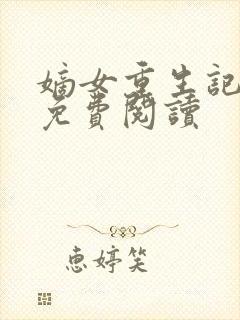 嫡女重生記
免費閱讀
惠婷笑